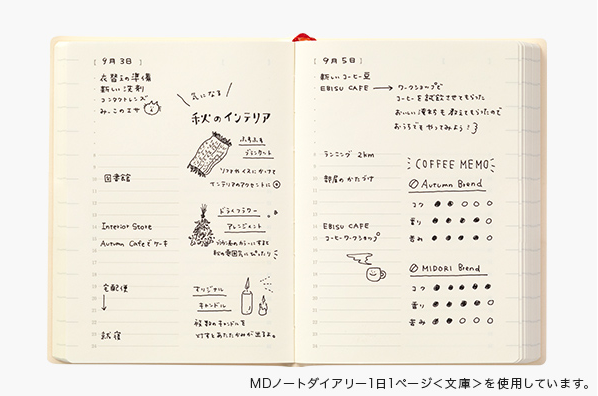 [ 9月3日 ]
衣替えの準備
新しい洗剤
コンタクトレンズ
みーこのエサ
気になる
秋のインテリア
ふわふわ
ブランケット
ソファやイスにかけて
インテリアのアクセントに
図書館
ドライフラワー
アレンジメント
Interior Store
Autumn Cafeでケーキ
秋の雰囲気にぴったり
宅配便
オリジナル
キャンドル
灯すとあたたかみが出るよ。
就寝
[ 9月5日 ]
新しいコーヒー豆
EBISU CAFE
ワークショップで
コーヒーを試飲させてもらった
おいしい淹れ方も教えてもらったので
おうちでもやってみよう!
ランニング 2km
部屋のかたづけ
COFFEE MEMO
Autumn Brend
コク
香り
苦み
EBISU CAFE
コーヒーワークショップ
MIDORI Brend
コク
香り
苦み
MDノートダイアリー1日1ページ<文庫>を使用しています。